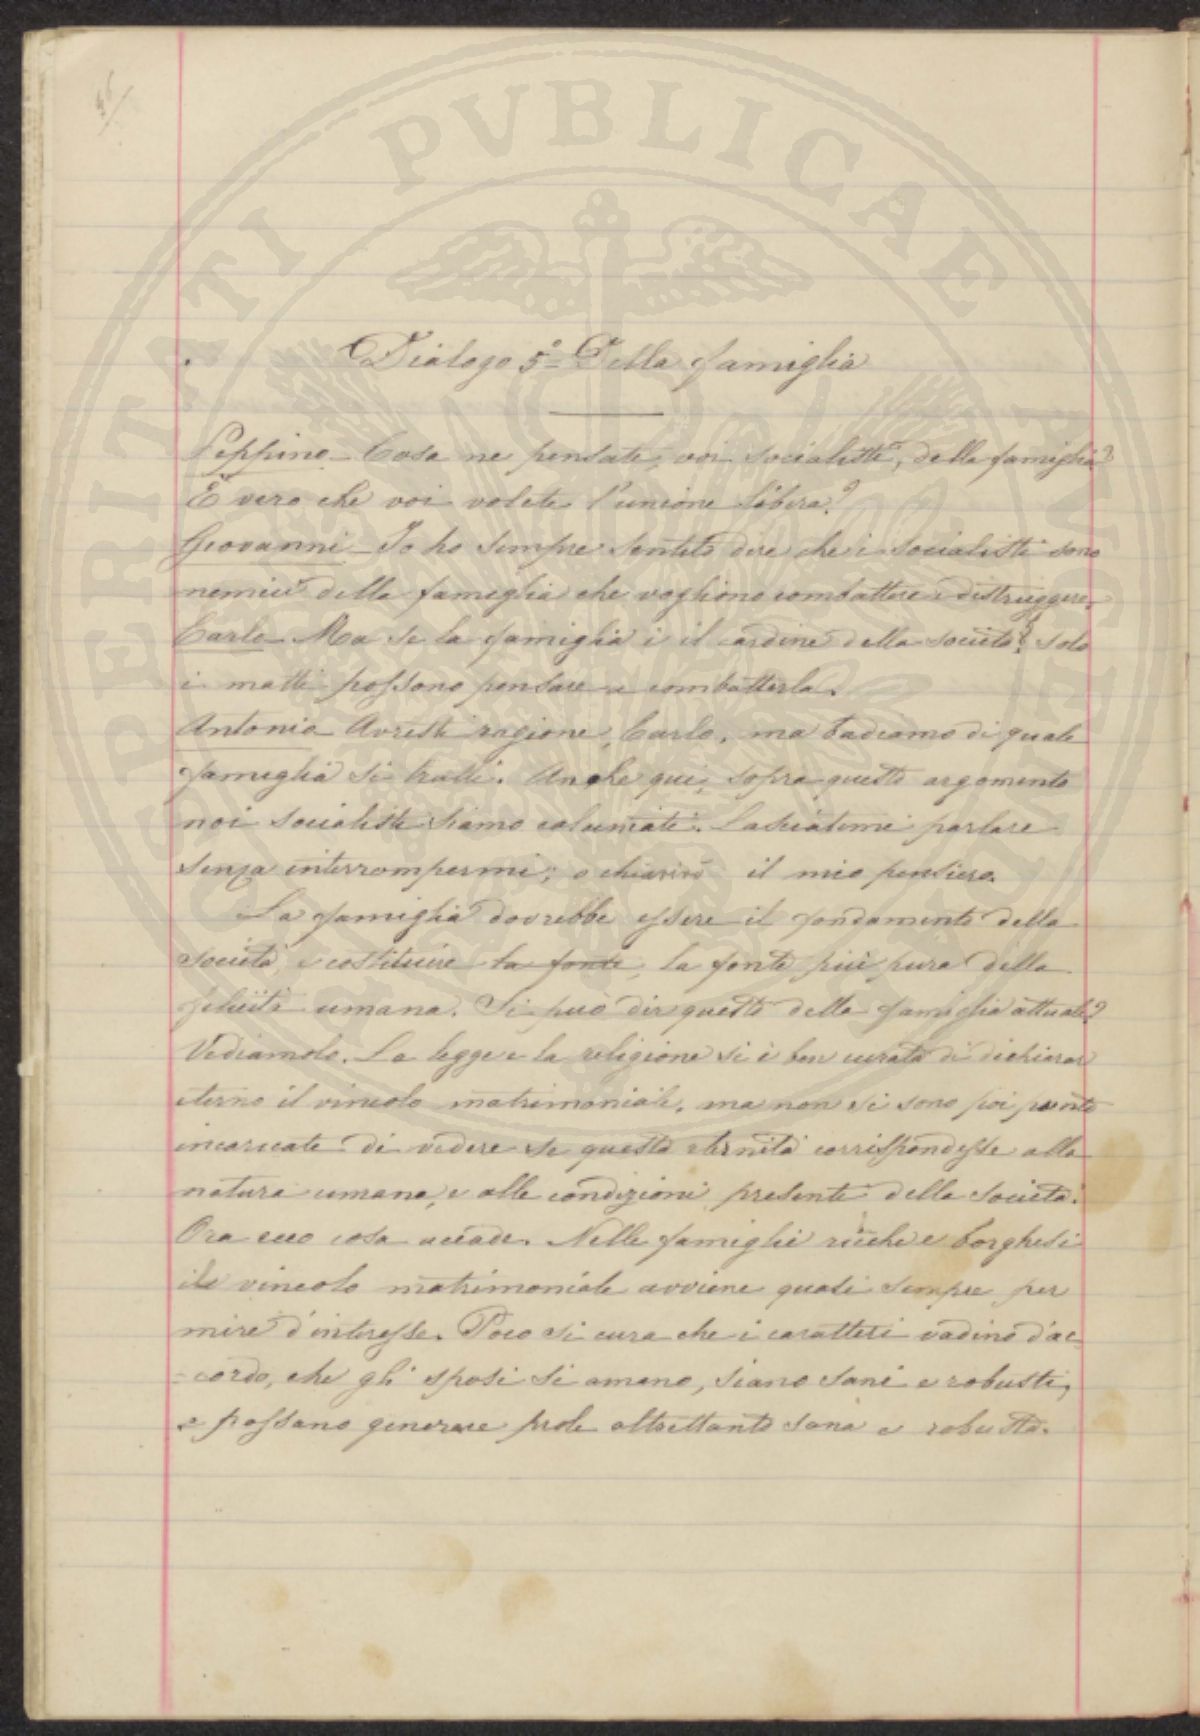 Dialogo 5º= Della famiglia
Peppino - Cosa ne pensate, voi socialisti, della famiglia?
È vero che voi volete l'unione libera?
Giovanni - Io ho sempre sentito dire che i socialisti sono
nemici della famiglia che vogliono combattere e distruggere.
Carlo - Ma se la famiglia è il cardine della società? solo
i matti possono pensare a combatterla.
Antonio - Avresti ragione, Carlo, ma badiamo di quale
famiglia si tratti. Anche qui, sopra questo argomento
noi socialisti siamo calunniati. Lasciatemi parlare
senza interrompermi; e chiarirò il mio pensiero.
La famiglia dovrebbe essere il fondamento della
società, e costituire la fonte, la fonte più pura della
felicità umana. Si può dir questo della famiglia attuale?
Vediamolo. La legge e la religione si è ben curata di dichiarar
eterno il vincolo matrimoniale, ma non si sono poi punto
incaricate di vedere se questa eternità corrispondesse alla
natura umana, e alle condizioni presenti della società.
Ora ecco cosa accade. Nelle famiglie ricche e borghesi
il vincolo matrimoniale avviene quasi sempre per
mire d'interesse. Poco si cura che i caratteri vadino d'ac-
-cordo, che gli sposi si amano, siano sani e robusti,
e possano generare prole altrettanto sana e robusta.
PERITATI PVBLICAE